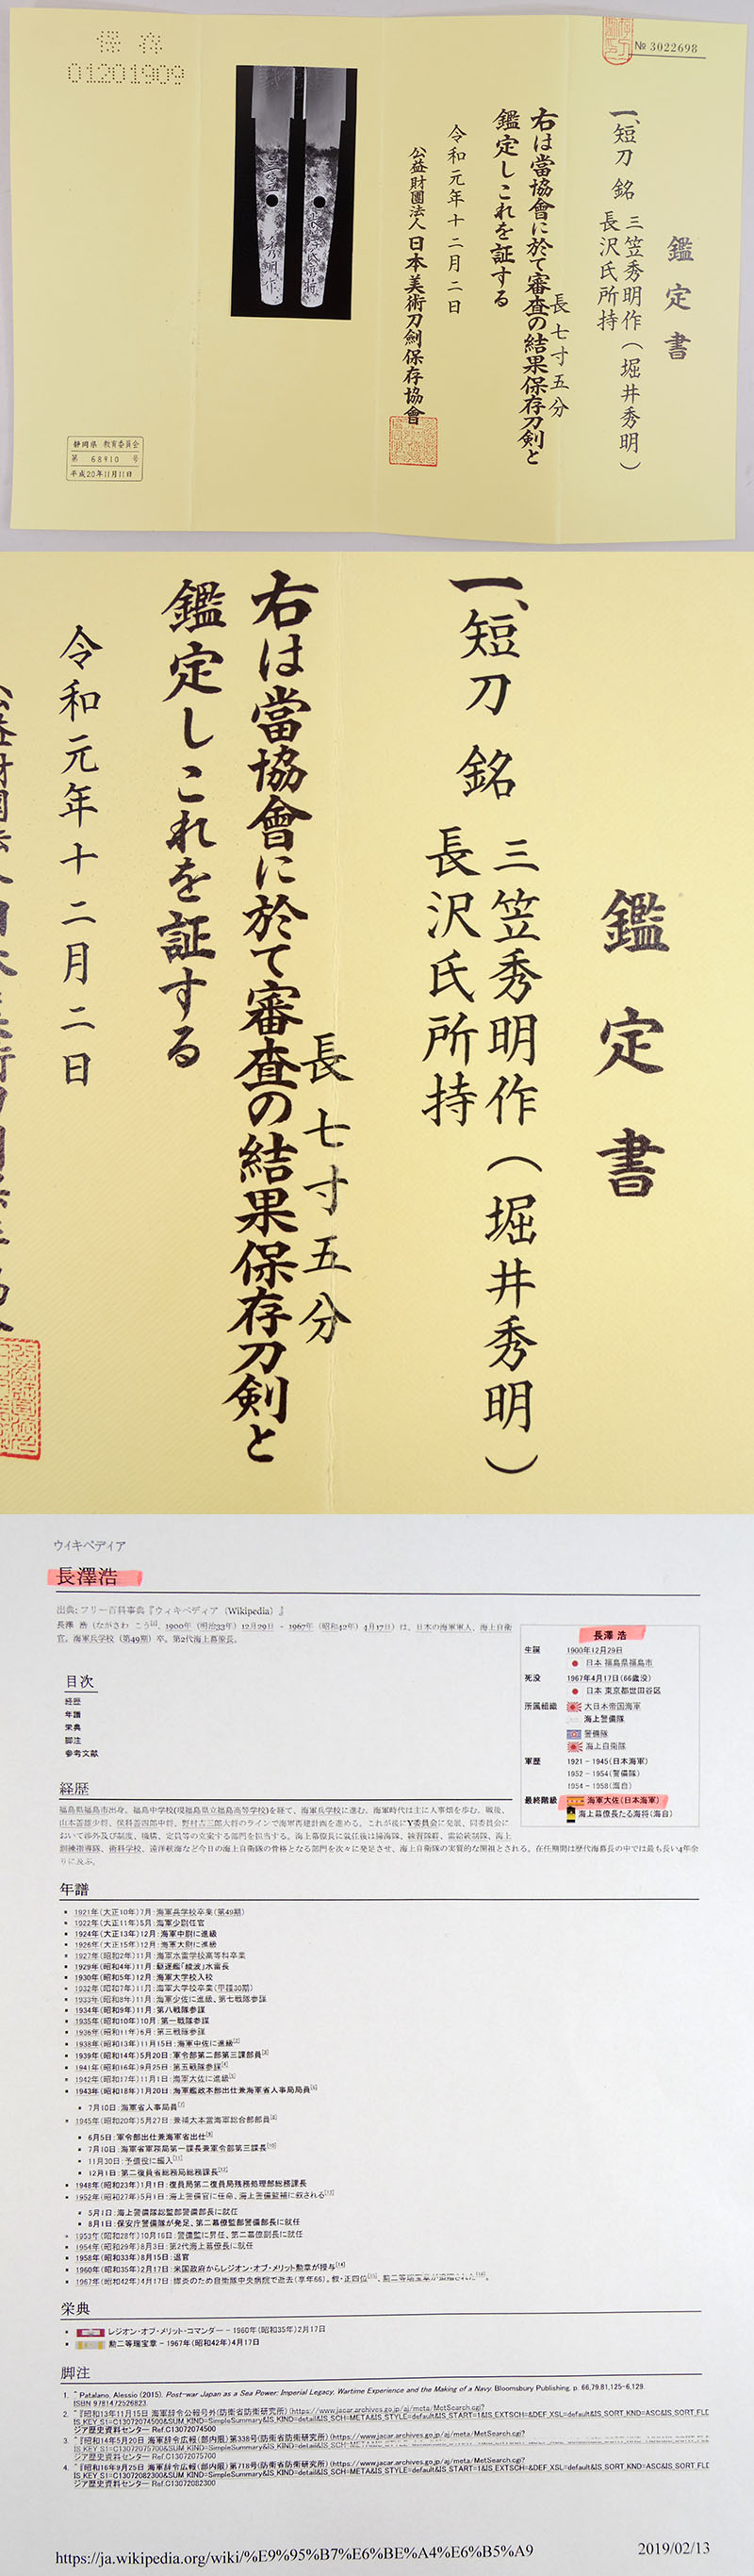 保存
01201909
№ 3022698
鑑定書
一、短刀 銘 三笠秀明作(堀井秀明)
長沢氏所持
長七寸五分
右は當協會に於て審査の結果保存刀剣と
鑑定しこれを証する
令和元年十二月二日
公益財團法人日本美術刀劍保存協會
静岡県 教育委員会
第 68910 号
平成20年11月11日
鑑定書
一、短刀 銘 三笠秀明作(堀井秀明)
長沢氏所持
長七寸五分
右は當協會に於て審査の結果保存刀剣と
鑑定しこれを証する
令和元年十二月二日
ウィキペディア
長澤浩
出典: フリー百科事典『ウィキペディア (Wikipedia)』
長澤 浩(ながさわ こう、1900年(明治33年)12月29日 - 1967年(昭和42年)4月17日)は、日本の海軍軍人、海上自衛
官。海軍兵学校(第49期)卒。第2代海上幕僚長。
長澤 浩
生誕 1900年12月29日
日本 福島県福島市
死没 1967年4月17日(66歳没)
日本 東京都世田谷区
所属組織 大日本帝国海軍
海上警備隊
警備隊
海上自衛隊
軍歴 1921 - 1945(日本海軍)
1952 - 1954(警備隊)
1954 - 1958(海自)
最終階級 海軍大佐(日本海軍)
海上幕僚長たる海将(海自)
目次
経歴
年譜
栄典
脚注
参考文献
経歴
福島県福島市出身。福島中学校(現福島県立福島高等学校)を経て、海軍兵学校に進む。海軍時代は主に人事畑を歩む。戦後、
山本善雄少将、保科善四郎中将、野村吉三郎大将のラインで海軍再建計画を進める。これが後にY委員会に発展、同委員会に
おいて渉外及び制度、職構、定員等の立案する部門を担当する。海上幕僚長に就任後は掃海隊、練習隊群、需給統制隊、海上
訓練指導隊、術科学校、遠洋航海など今日の海上自衛隊の骨格となる部門を次々に発足させ、海上自衛隊の実質的な開祖とされる。在任期間は歴代海幕長の中では最も長い4年余
りに及ぶ。
年譜
1921年(大正10年)7月:海軍兵学校卒業(第49期)
1922年(大正11年)5月:海軍少尉任官
1924年(大正13年)12月:海軍中尉に進級
1926年(大正15年)12月:海軍大尉に進級
1927年(昭和2年)11月:海軍水雷学校高等科卒業
1929年(昭和4年)11月:駆逐艦「綾波」水雷長
1930年(昭和5年)12月:海軍大学校入校
1932年(昭和7年)11月:海軍大学校卒業(甲種30期)
1933年(昭和8年)11月:海軍少佐に進級、第七戦隊参謀
1934年(昭和9年)11月:第八戦隊参謀
1935年(昭和10年)10月:第一戦隊参謀
1936年(昭和11年)6月:第三戦隊参謀
1938年(昭和13年)11月15日:海軍中佐に進級[2]
1939年(昭和14年)5月20日:軍令部第二部第三課部員[3]
1941年(昭和16年)9月25日:第五戦隊参謀[4]
1942年(昭和17年)11月1日:海軍大佐に進級[5]
1943年(昭和18年)1月20日:海軍艦政本部出仕兼海軍省人事局局員[6]
7月10日:海軍省人事局員[7]
1945年(昭和20年)5月27日:兼補大本営海軍総合部部員[8]
6月5日:軍令部出仕兼海軍省出仕[9]
7月10日:海軍省軍務局第一課長兼軍令部第三課長[10]
11月30日:予備役に編入[11]
12月1日:第二復員省総務局総務課長[12]
1948年(昭和23年)1月1日:復員局第二復員局残務処理部総務課長
1952年(昭和27年)5月1日:海上警備官に任命、海上警備監補に叙される[13]
5月1日:海上警備隊総監部警備部長に就任
8月1日:保安庁警備隊が発足、第二幕僚監部警備部長に就任
1953年(昭和28年)10月16日:警備監に昇任、第二幕僚副長に就任
1954年(昭和29年)8月3日:第2代海上幕僚長に就任
1958年(昭和33年)8月15日:退官
1960年(昭和35年)2月17日:米国政府からレジオン・オブ・メリット勲章が授与[14]
1967年(昭和42年)4月17日:膵炎のため自衛隊中央病院で逝去(享年66)。叙・正四位[15]、勲二等瑞宝章が追贈された[16]。
栄典
レジオン・オブ・メリット・コマンダー - 1960年(昭和35年)2月17日
勲二等瑞宝章 - 1967年(昭和42年)4月17日
脚注
1. ^ Patalano, Alessio (2015). Post-war Japan as a Sea Power: Imperial Legacy, Wartime Experience and the Making of a Navy. Bloomsbury Publishing. p. 66,79.81,125-6,129.
ISBN 9781472526823.
2. ^ 『昭和13年11月15日 海軍辞令公報号外(防衛省防衛研究所)(https://www.jacar.archives.go.jp/aj/meta/MetSearch.cgi?
IS_KEY_S1=C13072074500&SUM_KIND=SimpleSummary&IS_KIND=detail&IS_SCH=META&IS_STYLE=default&IS_START=1&IS_EXTSCH=&DEF_XSL=default&IS_SORT_KND=ASC&IS_SORT_FLD
ジア歴史資料センター Ref.C13072074500
3. ^ 『昭和14年5月20日 海軍辞令広報(部内限)第338号(防衛省防衛研究所)(https://www.jacar.archives.go.jp/aj/meta/MetSearch.cgi?
ジア歴史資料センター Ref.C13072075700
4. ^ 『昭和16年9月25日 海軍辞令広報(部内限)第718号(防衛省防衛研究所)(https://www.jacar.archives.go.jp/aj/meta/MetSearch.cgi?
IS_KEY_S1=C13072082300&SUM_KIND=SimpleSummary&IS_KIND=detail&IS_SCH=META&IS_STYLE=default&IS_START=1&IS_EXTSCH=&DEF_XSL=default&IS_SORT_KND=ASC&IS_SORT_FLD
ジア歴史資料センター Ref.C13072082300
https://ja.wikipedia.org/wiki/%E9%95%B7%E6%BE%A4%E6%B5%A9
2019/02/13